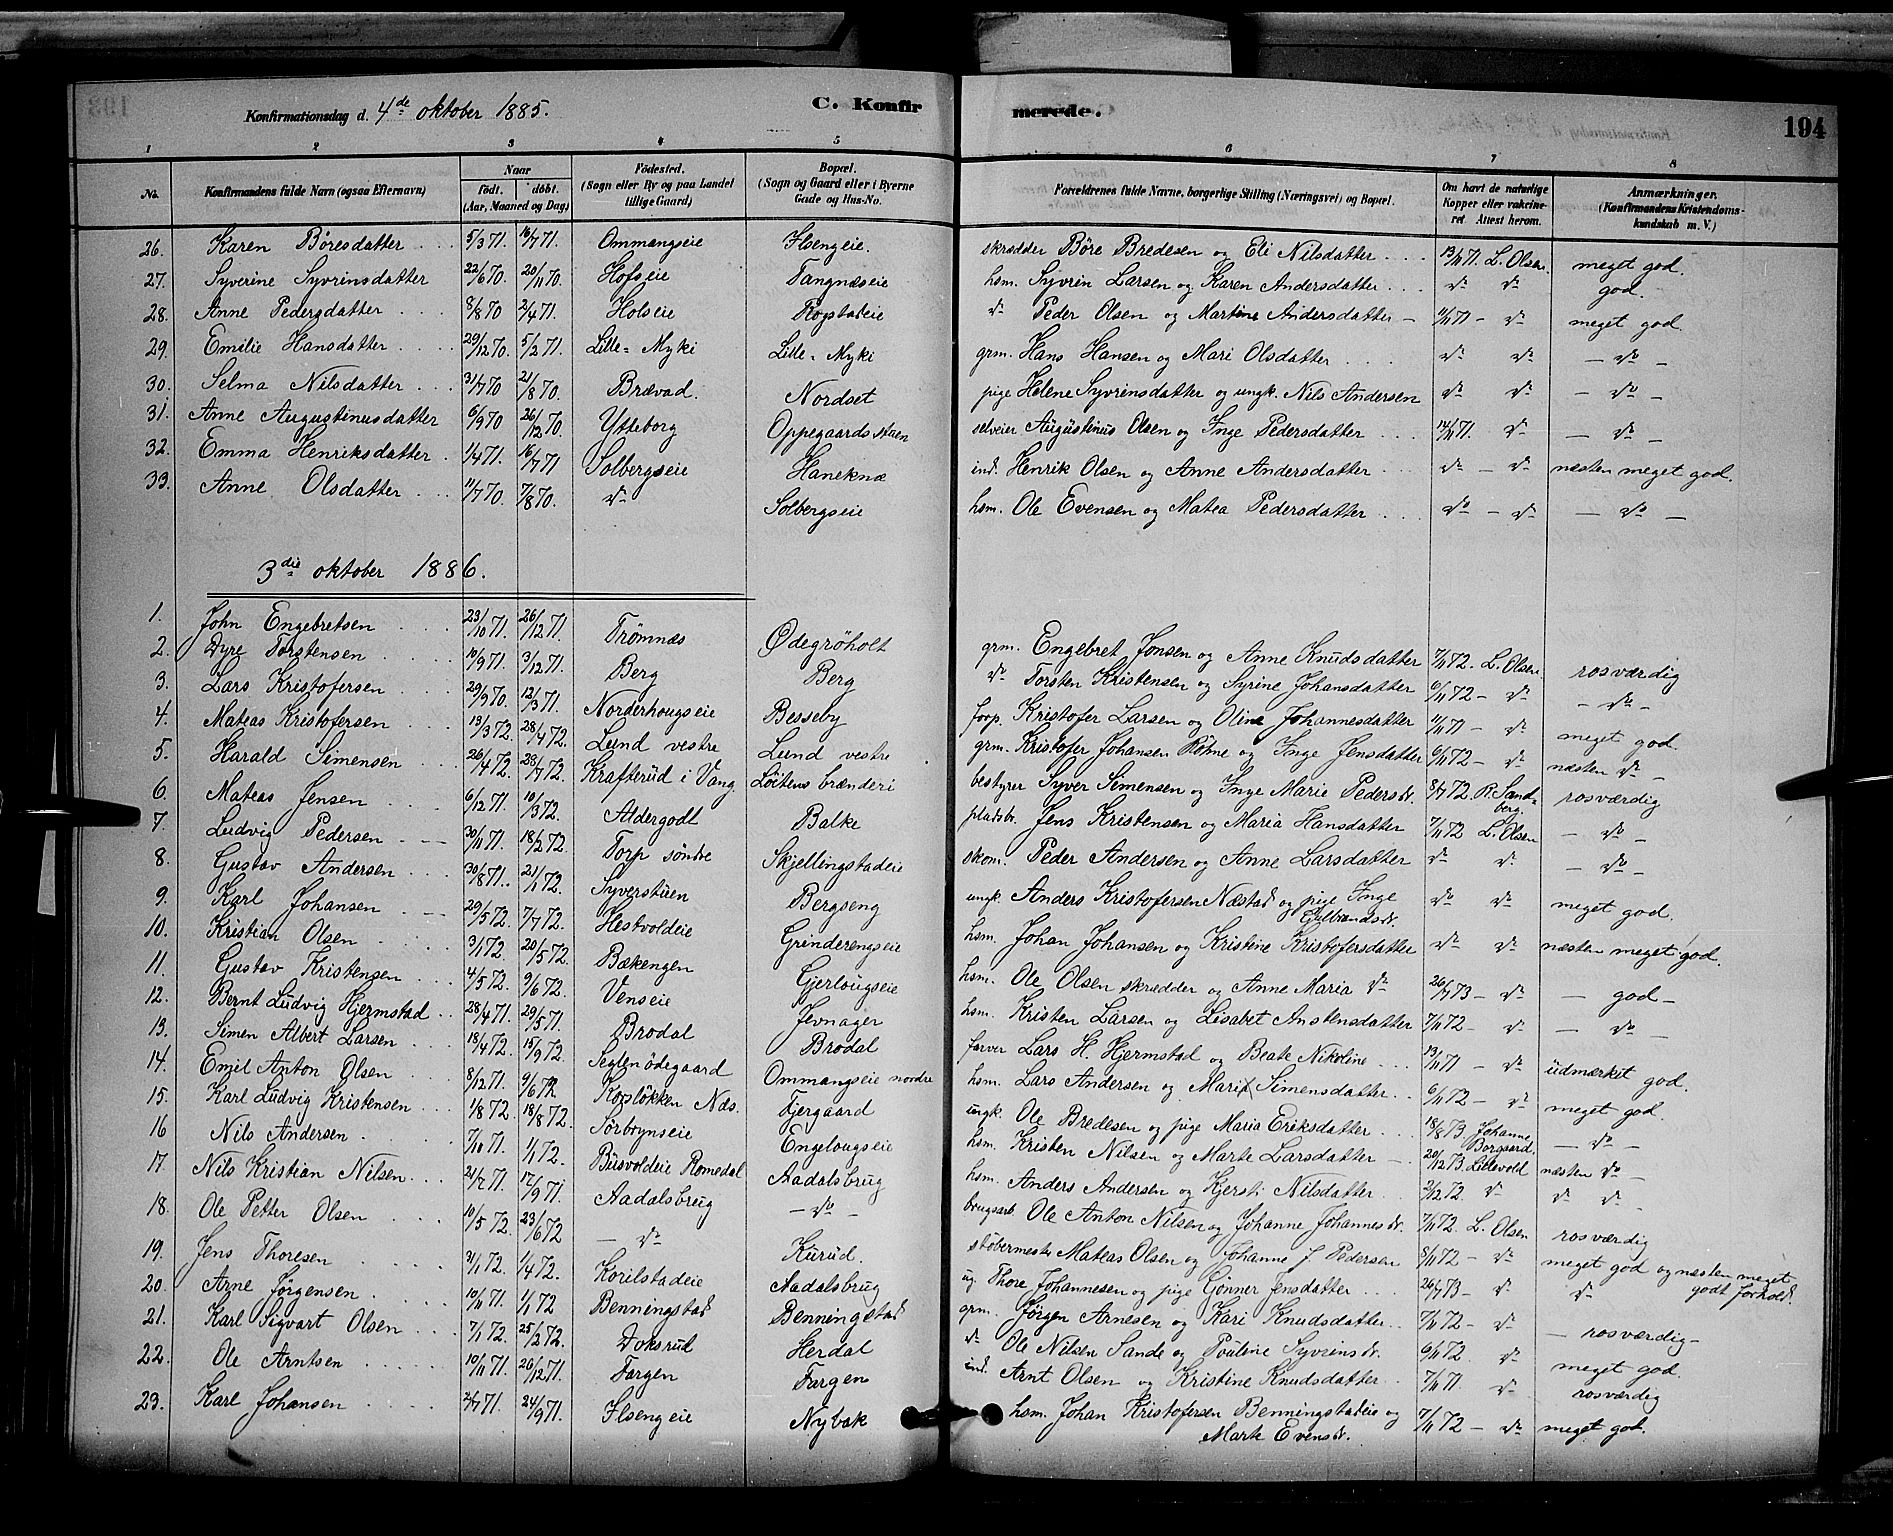 Konfirmationsdag d. 4de oktober 1885.
C. Konfirmerede.
194
1 2 3 4 5 6 7 8
No. Konfirmandens fulde Navn (ogsaa Efternavn) Naar født. døbt. (Aar, Maaned og Dag) Fødested. (Sogn eller By og paa Landet tillige Gaard) Bopæl. (Sogn og Gaard eller i Byerne Gade og Hus-No. Forældrenes fulde Navne, borgerlige Stilling (Næringsvei) og Bopæl. Om havt de naturlige Kopper eller vakcineret. Attest herom. Anmærkninger. (Konfirmandens Kristendomskundskab m. V.)
26. Karen Børesdatter 5/3 71. 16/7 71. Ommangseie Ilsengeie. skrædder Børe Bredesen og Eli Nilsdatter 13/11 71. L. Olsen. meget god.
27. Syverine Syvrinsdatter 22/6 70. 20/11 70. Hofseie Tangnæseie hsm. Syvrin Larsen og Karen Andersdatter do do god.
28. Anne Pedersdatter 8/8 70 2/4 71. Holseie Rogstadeie do Peder Olsen og Martine Andersdatter 11/11 71 - do meget god.
29. Emilie Hansdatter 29/12 70. 5/2 71. Lille-Myki Lille-Myki grm. Hans Hansen og Mari Olsdatter do do - do -
30. Selma Nilsdatter 31/7 70 21/8 70. Brævad. Nordset pige Helene Syvrinsdatter og ungk. Nils Andersen do do - do -
31. Anne Augustinusdatter 6/9 70 26/12 70. Ytteborg Oppegaardsstuen selveier Augustinus Olsen og Inge Pedersdatter 14/11 71. do - do -
32. Emma Henriksdatter 1/4 71. 16/7 71 Solbergseie Haneknæ ind. Henrik Olsen og Anne Andersdatter do - do næsten meget god.
33. Anne Olsdatter 11/7 70. 7/8 70. do Solbergseie hsm. Ole Evensen og Matea Pedersdatter do - do - do -
3die oktober 1886.
1. John Engebretsen 23/10 71. 26/12 71. Trømnæs Ødegrøholt grm. Engebret Jonsen og Anne Knudsdatter 7/11 72. L. Olsen. rosværdig
2. Dyre Torstensen 10/9 71. 3/12 71. Berg Berg do Torsten Kristensen og Syrine Johansdatter 6/11 72 - do - do -
3. Lars Kristofersen 29/9 70. 12/3 71. Norderhougseie Besseby forp. Kristofer Larsen og Oline Johannesdatter 11/11 71 - do meget god.
4. Mateas Kristofersen 13/3 72. 28/4 72. Lund vestre Lund vestre grm. Kristofer Johansen Røhne og Inge Jensdatter 6/11 72 - do næsten do -
5. Harald Simensen 26/4 72. 28/7 72. Krafterud i Vang Løitens brænderi bestyrer Syver Simensen og Inge Marie Pedersdr. 8/7 72 R. Sandberg. rosværdig
6. Mateas Jensen 6/12 71. 10/3 72. Aldergodt Balke pladsbr. Jens Kristensen og Maria Hansdatter 7/11 72 L. Olsen - do -
7. Ludvig Pedersen 30/11 71. 18/2 72. Torp søndre Skjellingstadeie skom. Peder Andersen og Anne Larsdatter do do - do -
8. Gustav Andersen 30/8 71. 21/1 72. Syverstuen Bergseng ungk. Anders Kristofersen Næstad og pige Inge Gulbrandsdr. do do meget god.
9. Karl Johansen 29/5 72. 7/7 72. Hestvoldeie Grinderengseie hsm. Johan Johansen og Kristine Kristofersdatter do do næsten meget god.
10. Kristian Olsen 3/1 72. 20/5 72. Bækengen Gjerlougseie hsm. Ole Olsen skrædder og Anne Maria do 26/7 73 - do - god -
11. Gustav Kristensen 4/5 72. 9/6 72. Venseie Jevnager hsm. Kristen Larsen og Lisabet Anstensdatter 7/11 72 - do - do
12. Bernt Ludvig Hjermstad 28/4 71. 29/5 71. Brodal Brodal farver Lars H. Hjermstad og Beate Nikoline 13/11 71 - do udmærket god.
13. Simen Albert Larsen 18/4 72. 15/9 72. Seglenødegaard Ommangseie nordre hsm. Lars Andersen og Mari Simensdatter 6/11 72 - do meget god.
14. Emil Anton Olsen 8/12 71. 9/6 72 Korsløkken Næs. Tjergaard ungk. Ole Bredesen og pige Maria Eriksdatter 18/8 73. Johanne Borgaard. - do -
15. Karl Ludvig Kristensen 1/8 72. 18/8 72. Sørbrynseie Engelougseie hsm. Kristen Nilsen og Marte Larsdatter 20/12 73. Lillevold næsten do -
16 Nils Andersen 7/10 71. 1/1 72. Busvoldeie Romedal Aadalsbrug hsm. Anders Andersen og Kjersti Nilsdatter 2/12 72. do do do
17. Nils Kristian Nilsen 21/7 71. 17/9 71. Aadalsbrug - do - brugsarb. Ole Anton Nilsen og Johanne Johannesdr. 7/11 72. L. Olsen rosværdig
18. Ole Petter Olsen 10/5 72. 23/6 72 - do Kurud. støbermester Mateas Olsen og Johanne J. Pedersen 8/11 72 - do meget god og næsten meget godt forhold.
19. Jens Thoresen 31/1 72. 1/4 72. Korilstadeie Aadalsbrug ug. Thore Johannesen og pige Gønner Jensdatter 26/7 73 - do do
20. Arne Jørgensen 10/11 71. 1/1 72 Benningstad Benningstad grm. Jørgen Arnesen og Kari Knudsdatter 7/11 72 - do - rosværdig -
21. Karl Sigvart Olsen 7/1 72. 25/2 72. Doksrud Herdal do Ole Nilsen Sande og Pouline Syvrinsdr. 6/11 72. do meget god.
22. Ole Arntsen 10/11 71. 26/12 71. Fargen Fargen ind. Arnt Olsen og Kristine Knudsdatter 7/11 71. do rosværdig
23. Karl Johansen 2/7 71. 24/9 71. Ilsengeie Nybak hsm. Johan Kristofersen Benningstadeie og Marte Evensdr. 7/11 72 - do meget god.